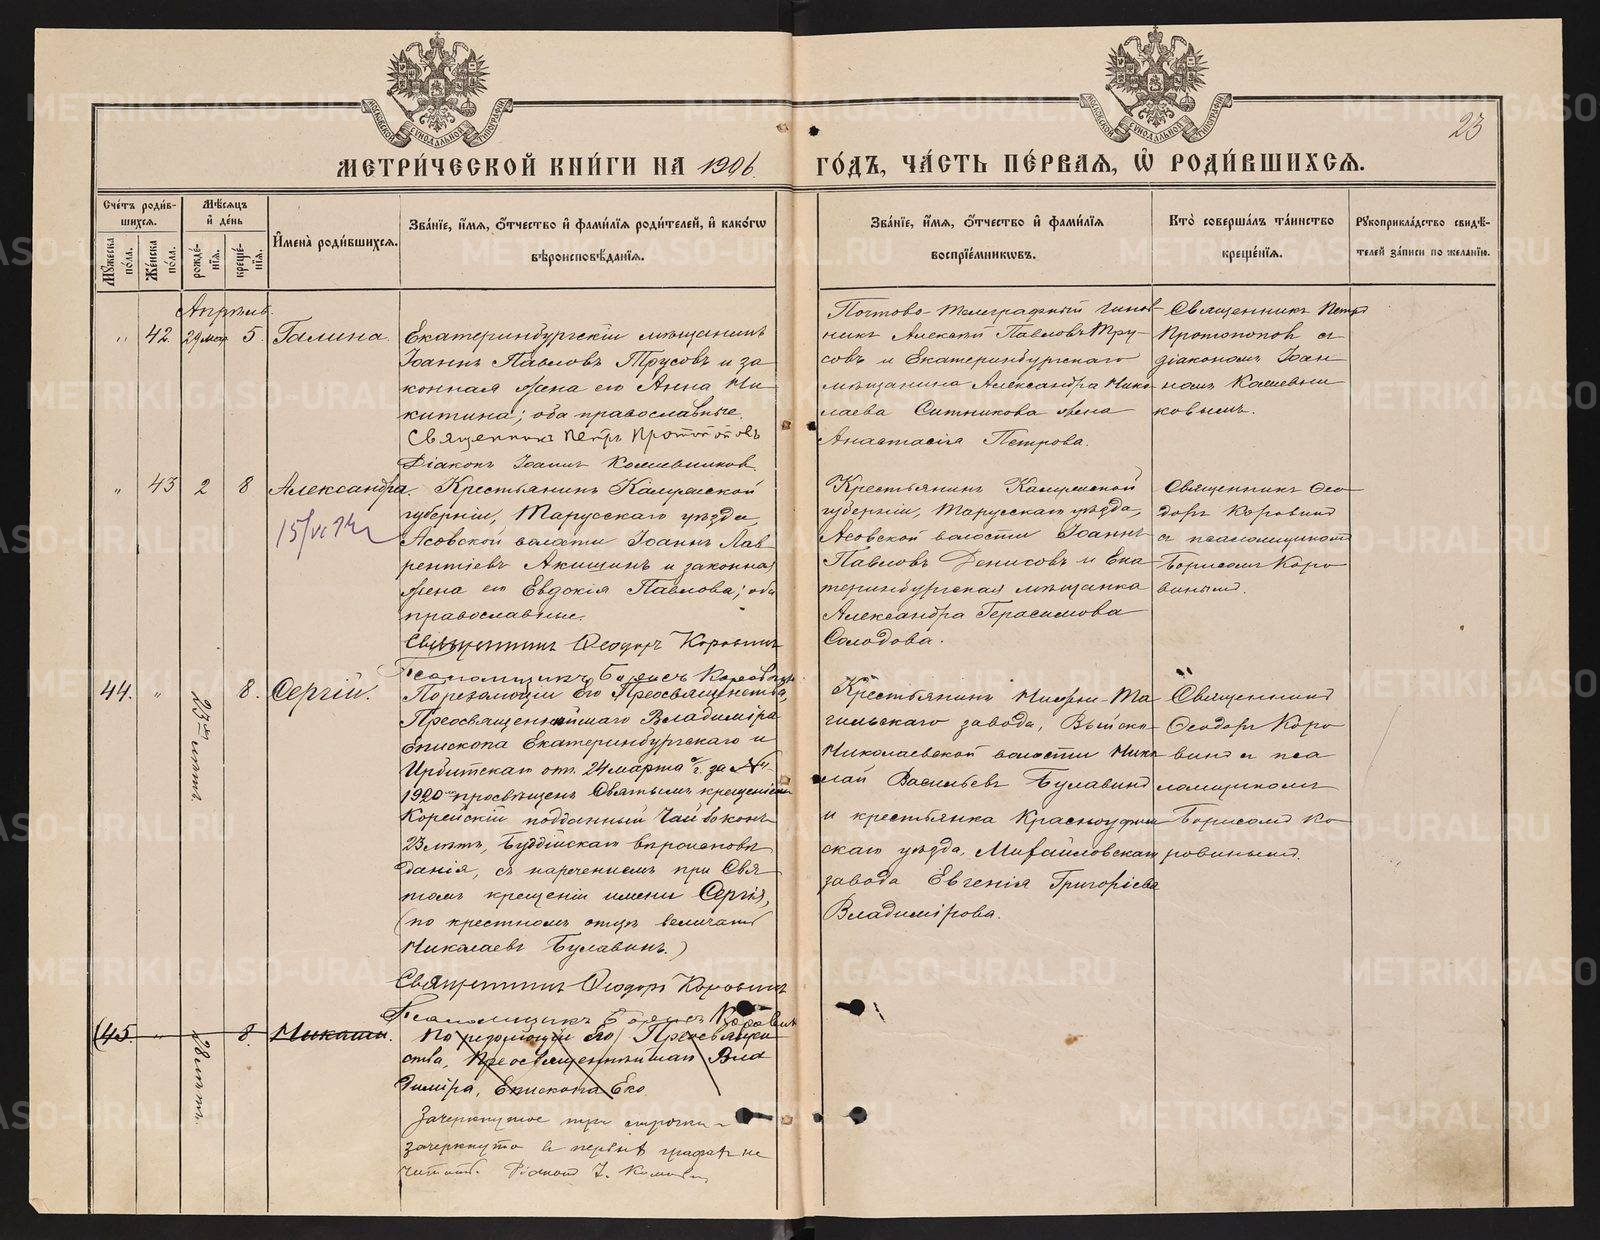 МЕТРИ́ЧЕСКОЙ КНИ́ГИ НА 1906 ГО́ДЪ, ЧА́СТЬ ПЕ́РВАЯ, Ѽ РОДИ́ВШИХСЯ.
23
Сче́тъ роди́в-
шихся.
Мꙋ́жеска по́ла.
Же́нска по́ла.
Мѣ́сяцъ и҆ де́нь
рожде́нїя.
креще́нїя.
И҆мена̀ роди́вшихся.
Зва́нїе, и҆́мя, ѻ҆́тчество и҆ фами́лїя роди́телей, и҆ како́гѡ
вѣроисповѣ́данїя.
Зва́нїе, и҆́мя, ѻ҆́тчество и҆ фами́лїя
воспрїе́мникѡвъ.
Кто̀ соверша́лъ та́инство
креще́нїя.
Рꙋкоприкла́дство свидѣ́-
телей за́писи по жела́нїю.
Апрѣль.
" 42. 29 мар 5. Галина.
Екатеринбургскій мѣщанинъ
Іоаннъ Павловъ Трусовъ и за
конная жена его Анна Ни
китина; оба православные.
Священникъ Петръ Протопоповъ
Діаконъ Іоаннъ Кошевниковъ.
Почтово-телеграфный чинов
никъ Алексѣй Павловъ Тру-
совъ и Екатеринбургскаго
мѣщанина Александра Нико
лаева Ситникова жена
Анастасія Петрова.
Священникъ Петръ
Протопоповъ съ
діакономъ Іоан
номъ Кошевни
ковымъ.
" 43 2 8 Александра.
Крестьянинъ Калужской
губерніи, Тарусскаго уѣзда,
волости Іоаннъ Лав
рентіевъ Акишинъ и законная
жена его Евдокія Павлова; оба
православные.
Священникъ Ѳеодоръ Коровинъ
Псаломщикъ Борисъ Коровинъ
Крестьянинъ Калужской
губерніи, Тарусскаго уѣзда,
волости Іоаннъ
Павловъ Денисовъ и Ека
теринбургская мѣщанка
Александра Герасимова
Солодова.
Священникъ Ѳео
доръ Коровинъ
съ псаломщикомъ
Борисомъ Коро
винымъ.
44. " 23 лѣтъ 8. Сергій.
По резолюціи Его Преосвященства,
Преосвященнѣйшаго Владиміра
Епископа Екатеринбургскаго и
Ирбитскаго отъ 24 марта с/г. за №
1920 просвѣщенъ Святымъ крещеніемъ
Корейскій подданный
23 лѣтъ, Буддійскаго вѣроисповѣ
данія, съ нареченіемъ при Свя
томъ крещеніи имени Сергія,
(по крестномъ отцѣ величать
Николаевъ Булавинъ.)
Священникъ Ѳеодоръ Коровинъ
Псаломщикъ Борисъ Коровинъ
Крестьянинъ Нижне-Та
гильскаго завода, Выйско
Николаевской волости Нико
лай Васильевъ Булавинъ
и крестьянка Красноуфим
скаго уѣзда, Михайловскаго
завода Евгенія Григоріева
Владимірова.
Священникъ
Ѳеодоръ Коро
винъ съ пса
ломщикомъ
Борисомъ Ко
ровинымъ.
(45. " 28 лѣтъ. 8. Николай.
По резолюціи Его Преосвящен
ства, Преосвященнѣйшаго Вла
диміра, Епископа Ека
Зачеркнутое три строчки
зачеркнуто въ первыхъ графахъ не
читать. Діаконъ І.